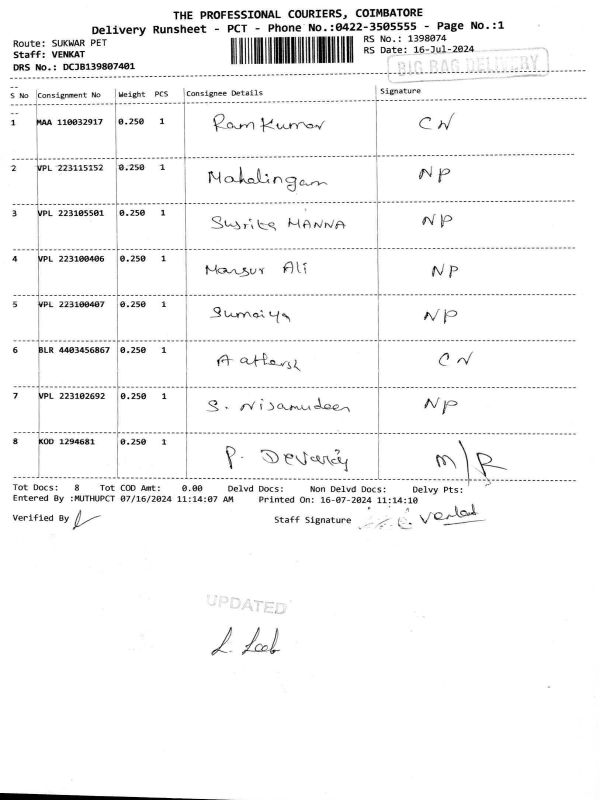 THE PROFESSIONAL COURIERS, COIMBATORE
Delivery Runsheet - PCT - Phone No.:0422-3505555 - Page No.:1
Route: SUKWAR PET RS No.: 1398074
Staff: VENKAT RS Date: 16-Jul-2024
DRS No.: DCJB139807401 BIG BAG DELIVERY
S No Consignment No Weight PCS Consignee Details Signature
1 MAA 110032917 0.250 1 Ram Kumar CN
2 VPL 223115152 0.250 1 Mahalingam NP
3 VPL 223105501 0.250 1 Susrita MANNA NP
4 VPL 223100406 0.250 1 Mansur Ali NP
5 VPL 223100407 0.250 1 Sumaiya NP
6 BLR 4403456867 0.250 1 CN
7 VPL 223102692 0.250 1 S. Nisamudeen NP
8 KOD 1294681 0.250 1 P. Devaraj M/R
Tot Docs: 8 Tot COD Amt: 0.00 Delvd Docs: Non Delvd Docs: Delvy Pts:
Entered By :MUTHUPCT 07/16/2024 11:14:07 AM Printed On: 16-07-2024 11:14:10
Verified By Staff Signature Venkat
UPDATED